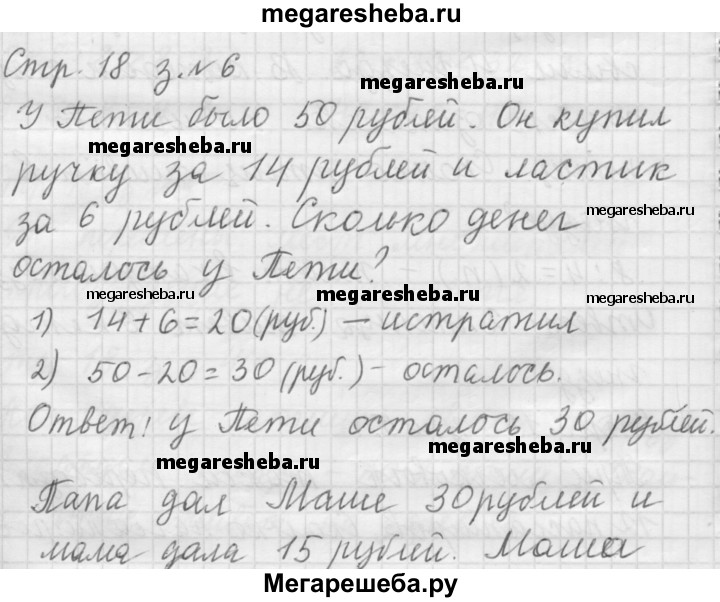 megaresheba.ru
Стр. 18 з. № 6
megaresheba.ru
У Пети было 50 рублей. Он купил
megaresheba.ru
ручку за 14 рублей и ластик
за 6 рублей. Сколько денег
megaresheba.ru
осталось у Пети?
megaresheba.ru megaresheba.ru megaresheba.ru
1) 14+6=20(руб.) – истратил
2) 50-20=30(руб.)- осталось.
Ответ: у Пети осталось 30 рублей.
megaresheba.ru
megaresheba.ru
Папа дал Маше 30 рублей и
мама дала 15 рублей. Маша
Мегарешеба.ру